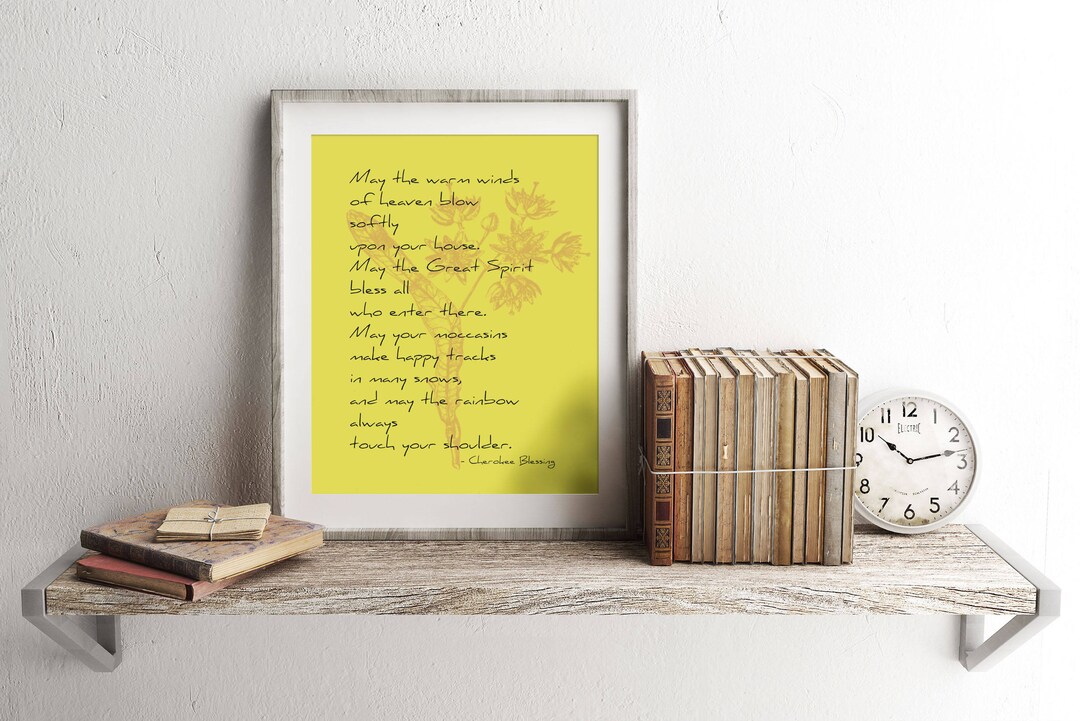 May the warm winds
of heaven blow
softly
upon your house.
May the Great Spirit
bless all
who enter there.
May your moccasins
make happy tracks
in many snows,
and may the rainbow
always
touch your shoulder.
- Cherokee Blessing
12
2
3
4
5
6
7
8
9
10
ELECTRIC